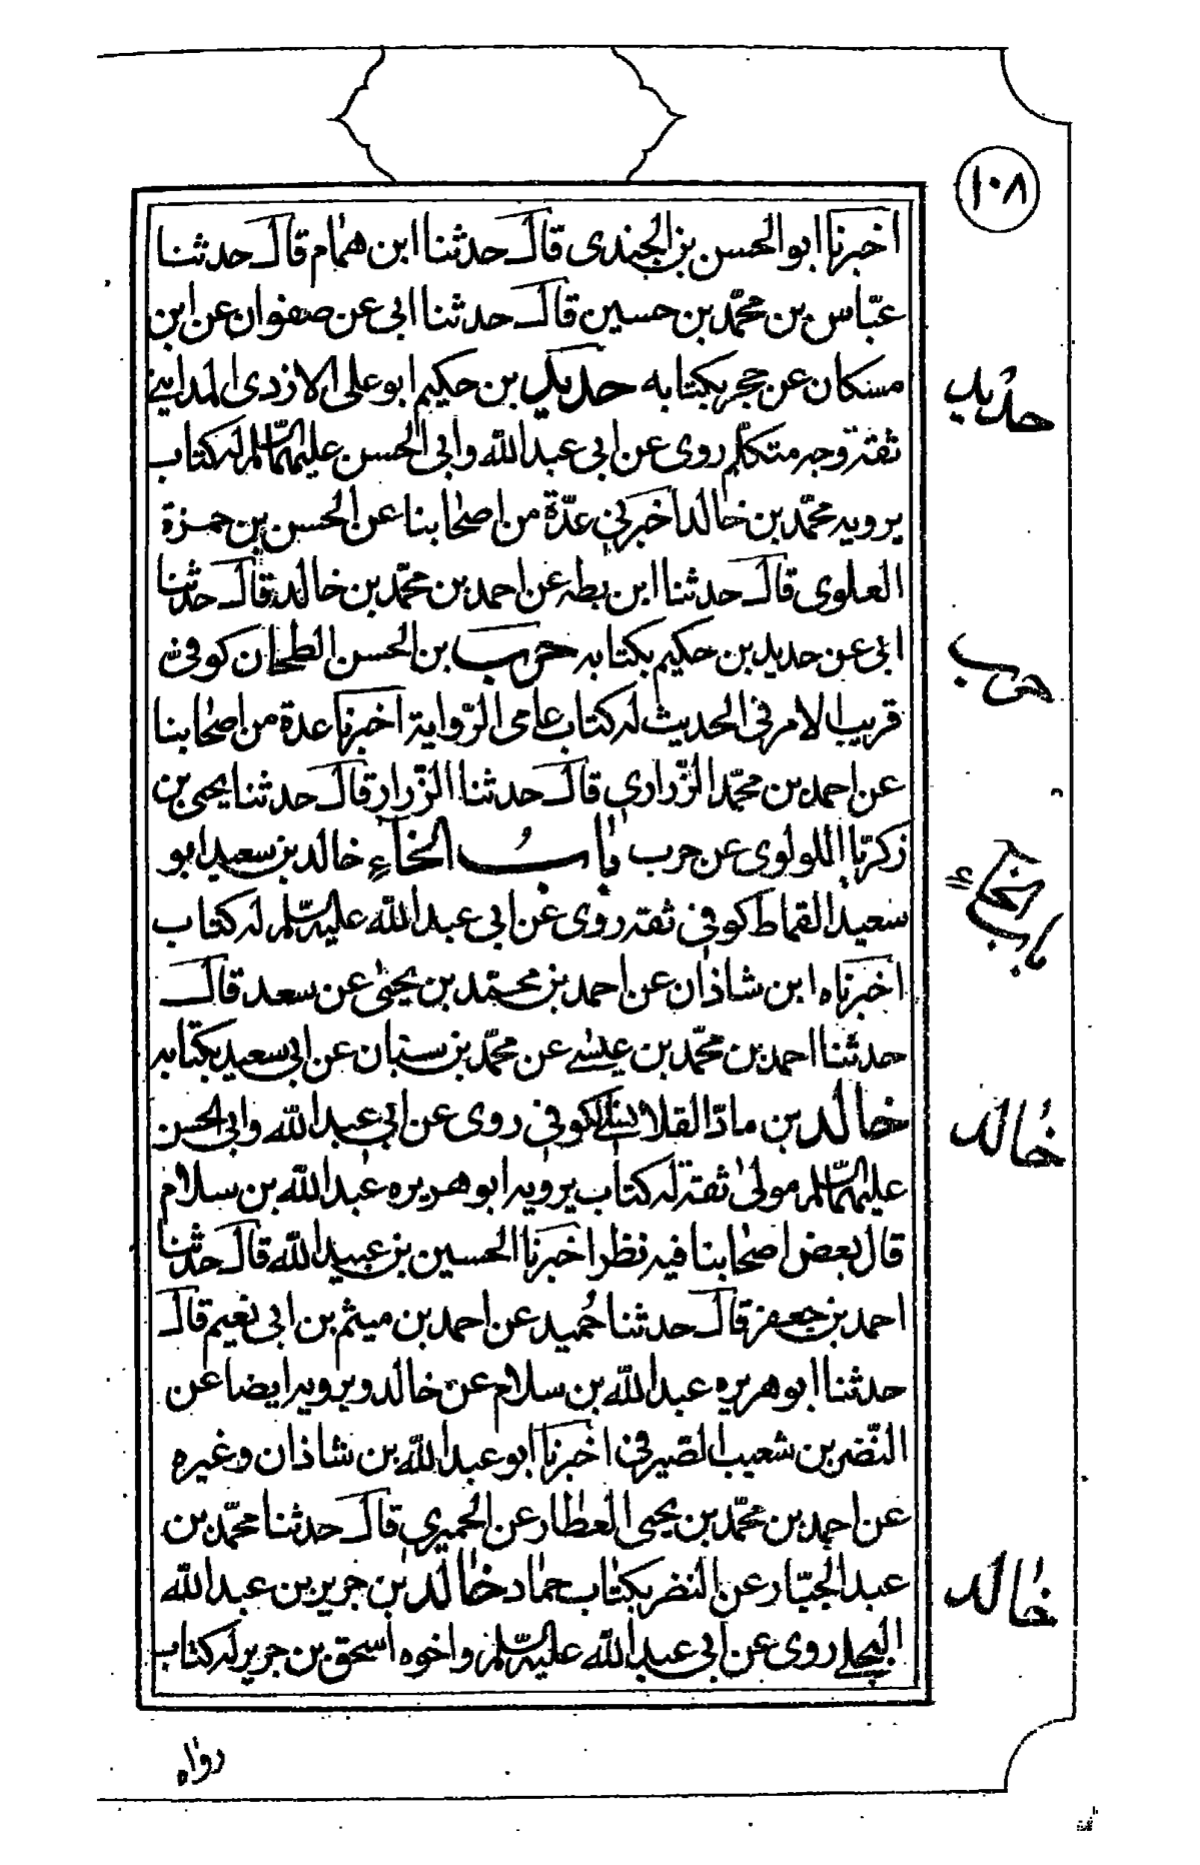 ١٠٨
اخبرنا ابو الحسن بن الجندى قال حدثنا ابن همام قال حدثنا
عبّاس بن محمّد بن حسين قال حدثنا ابى عن صفوان عن ابن
مسكان عن حجر بكتابه حديد بن حكيم ابو على الازدى المدائنى
حديد
ثقة وجه متكلم روى عن ابى عبد الله وابى الحسن عليهما السّلم له كتاب
يرويه محمّد بن خالد اخبرنى عدّة من اصحابنا عن الحسن بن حمزة
العلوى قال حدثنا ابن بطه عن احمد بن محمّد بن خالد قال حدثنا
ابى عن حديد بن حكيم بكتابه حرب بن الحسن الطحان كوفى
حرب
قريب الامر فى الحديث له كتاب عامى الرّواية اخبرنا عدة من اصحابنا
عن احمد بن محمّد الزّرارى قال حدثنا الرّزاز قال حدثنا يحيى بن
زكريّا اللولوى عن حرب باب الخاء خالد بن سعيد ابو
باب الخاء
سعيد القماط كوفى ثقة روى عن ابى عبد الله عليه السّلم له كتاب
اخبرناه ابن شاذان عن احمد بن محمّد بن يحيى عن سعد قال
حدثنا احمد بن محمّد بن عيسى عن محمّد بن سنان عن ابى سعيد بكتابه
خالد بن مادّ القلانسى الكوفى روى عن ابى عبد الله وابى الحسن
خالد
عليهما السّلم مولى ثقة له كتاب يرويه ابو هريره عبد الله بن سلام
قال بعض اصحابنا فيه نظر اخبرنا الحسين بن عبيد الله قال حدثنا
احمد بن جعفر قال حدثنا حُميد عن احمد بن ميثم بن ابى نعيم قال
حدثنا ابو هريره عبد الله بن سلام عن خالد ويرويه ايضا عن
النّضر بن شعيب الصّيرفى اخبرنا ابو عبد الله بن شاذان وغيره
عن احمد بن محمّد بن يحيى العطار عن الحميرى قال حدثنا محمّد بن
عبد الجبّار عن النضر بكتاب حماد خالد بن جرير بن عبد الله
خالد
البجلى روى عن ابى عبد الله عليه السّلم واخوه اسحق بن جرير له كتاب
رواه